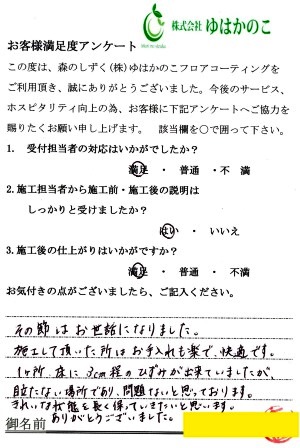 株式会社 ゆはかのこ
お客様満足度アンケート
この度は、森のしずく(株)ゆはかのこフロアコーティングを
ご利用頂き、誠にありがとうございました。今後のサービス、
ホスピタリティ向上の為、お客様に下記アンケートへご協力を
賜りたくお願い申し上げます。 該当欄を○で囲って下さい。
1. 受付担当者の対応はいかがでしたか?
満足 ・ 普通 ・不 満
2.施工担当者から施工前・施工後の説明は
しっかりと受けましたか?
はい ・ いいえ
3.施工後の仕上がりはいかがですか?
満足 ・ 普通 ・ 不満
お気付きの点がございましたら、ご記入ください。
その節はお世話になりました。
施工して頂いた所はお手入れも楽で、快適です。
1ヶ所、床に3cm程のひずみが出来ていましたが、
目立たない場所であり、問題ないと思っております。
きれいな状態を長く保っていきたいと思います。
ありがとうございました。
御名前